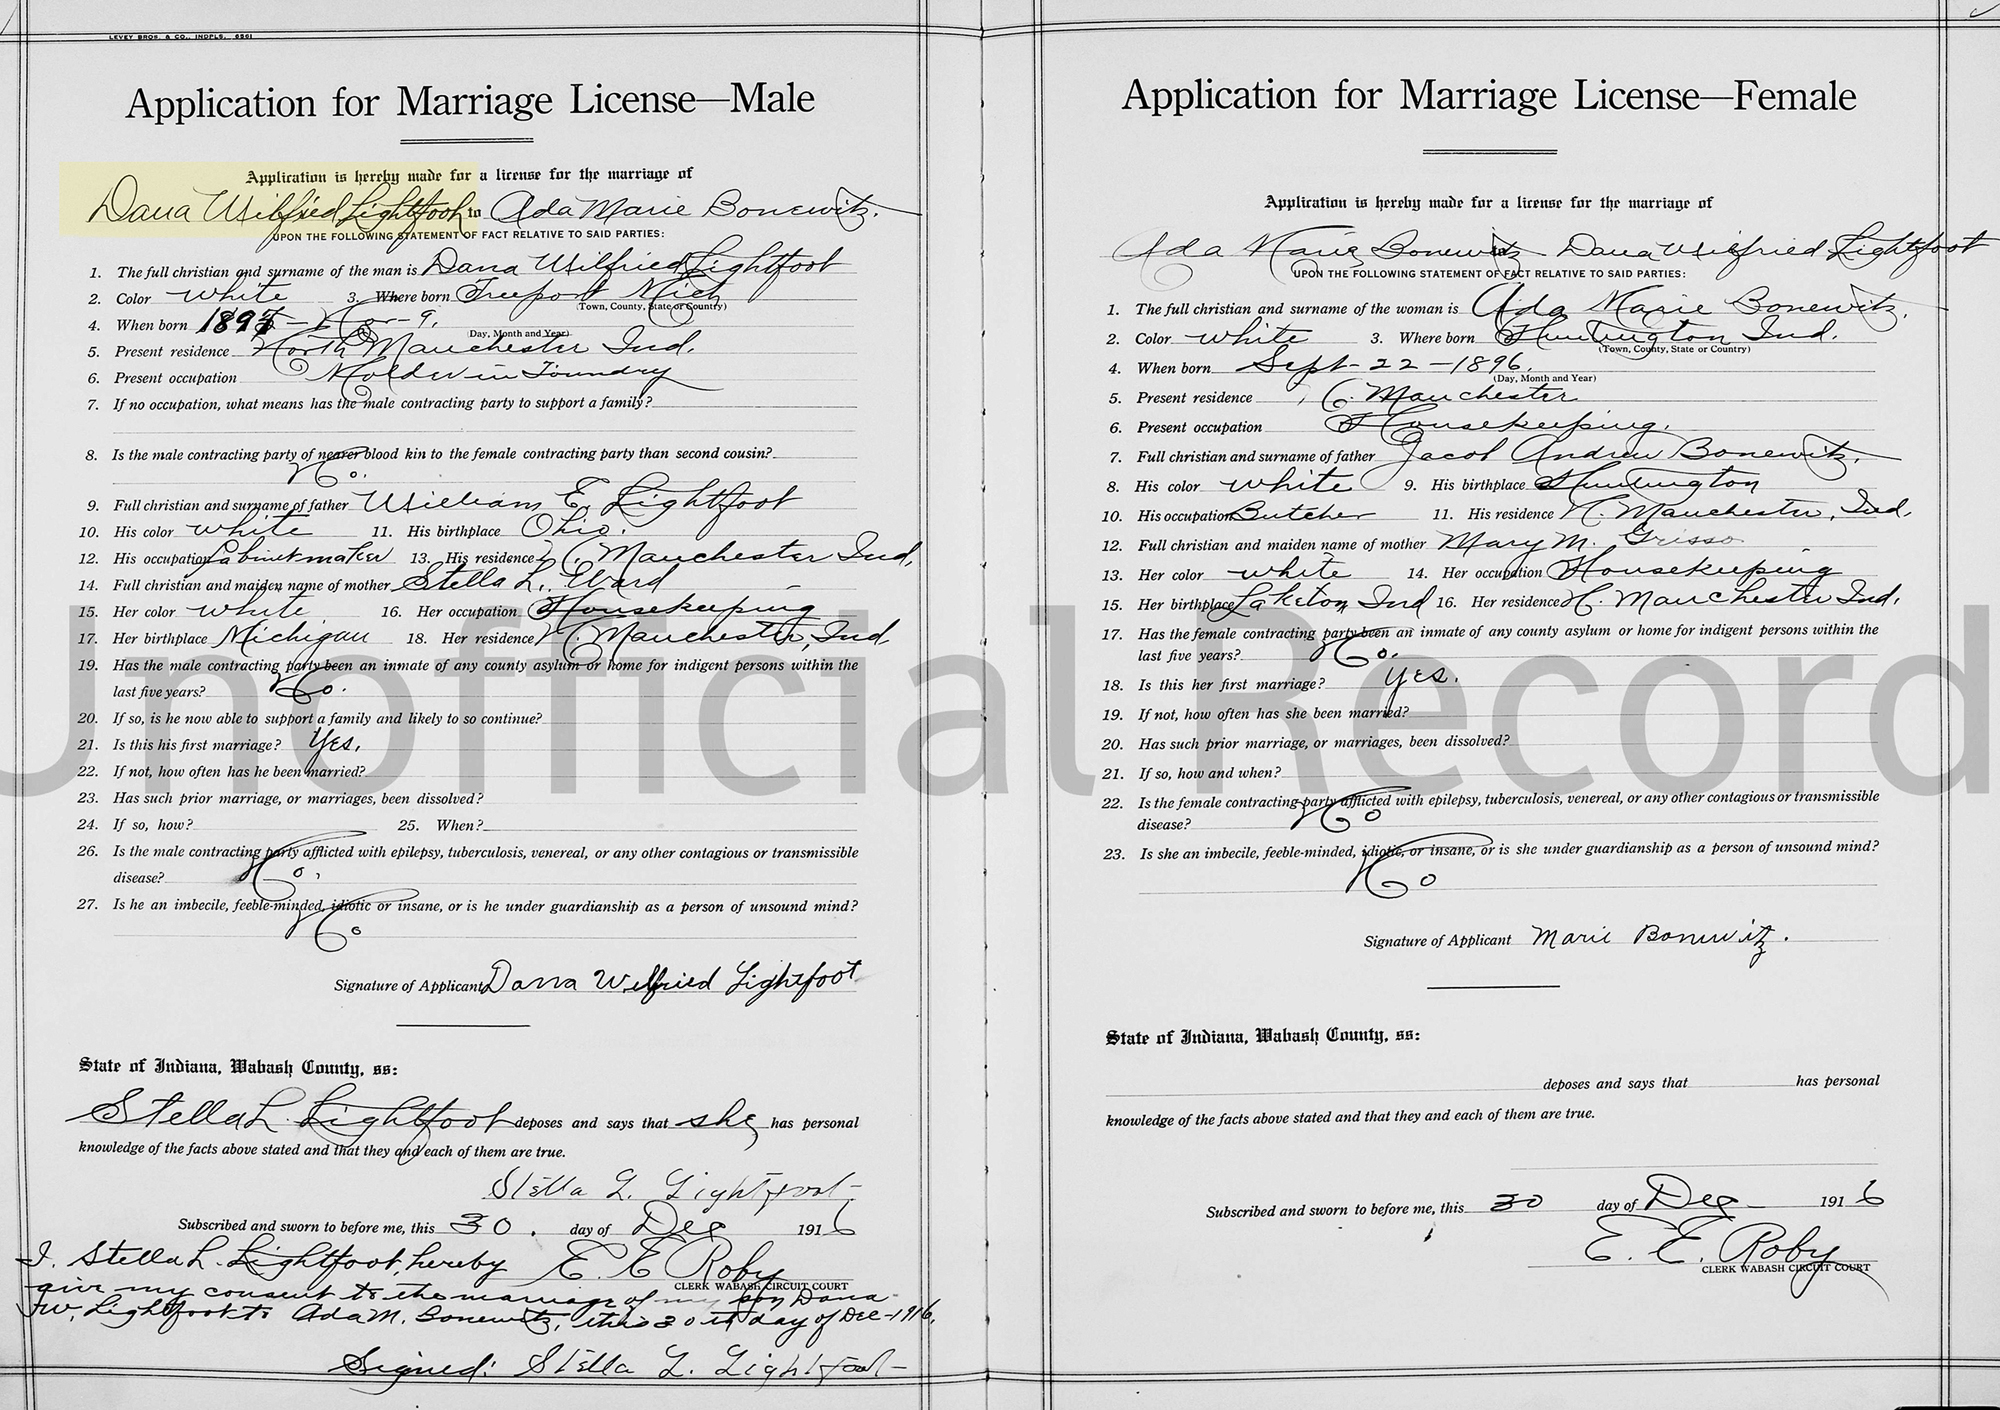 LEVEY BROS. & CO., INDPLS. 6561
Application for Marriage License—Male
Application is hereby made for a license for the marriage of
Dana Wilfried Lightfoot to Ada Marie Bonewitz.
UPON THE FOLLOWING STATEMENT OF FACT RELATIVE TO SAID PARTIES:
1. The full christian and surname of the man is Dana Wilfried Lightfoot
2. Color White 3. Where born Freeport Mich
(Town, County, State or Country)
4. When born - Mar - 9.
(Day, Month and Year)
5. Present residence North Manchester Ind.
6. Present occupation Molder in Foundry
7. If no occupation, what means has the male contracting party to support a family?
8. Is the male contracting party of nearer blood kin to the female contracting party than second cousin?
No.
9. Full christian and surname of father William E. Lightfoot
10. His color White 11. His birthplace Ohio.
12. His occupation Cabinetmaker 13. His residence N. Manchester Ind.
14. Full christian and maiden name of mother Stella L. Ward
15. Her color White 16. Her occupation Housekeeping
17. Her birthplace Michigan 18. Her residence N. Manchester, Ind
19. Has the male contracting party been an inmate of any county asylum or home for indigent persons within the
last five years? No.
20. If so, is he now able to support a family and likely to so continue?
21. Is this his first marriage? Yes.
22. If not, how often has he been married?
23. Has such prior marriage, or marriages, been dissolved?
24. If so, how? 25. When?
26. Is the male contracting party afflicted with epilepsy, tuberculosis, venereal, or any other contagious or transmissible
disease? No.
27. Is he an imbecile, feeble-minded, idiotic or insane, or is he under guardianship as a person of unsound mind?
No
Signature of Applicant Dana Wilfried Lightfoot
State of Indiana, Wabash County, ss:
Stella L. Lightfoot deposes and says that she has personal
knowledge of the facts above stated and that they and each of them are true.
Stella L. Lightfoot
Subscribed and sworn to before me, this 30. day of Dec 1916
E. E. Roby
CLERK WABASH CIRCUIT COURT
I. Stella L. Lightfoot, hereby
give my consent to the marriage of my son Dana
W. Lightfoot to Ada M. Bonewitz, this 30th day of Dec-1916.
Signed: Stella L. Lightfoot
Application for Marriage License—Female
Application is hereby made for a license for the marriage of
Ada Marie Bonewitz Dana Wilfried Lightfoot
UPON THE FOLLOWING STATEMENT OF FACT RELATIVE TO SAID PARTIES:
1. The full christian and surname of the woman is Ada Marie Bonewitz.
2. Color White 3. Where born Huntington Ind.
(Town, County, State or Country)
4. When born Sept-22-1896.
(Day, Month and Year)
5. Present residence N. Manchester
6. Present occupation Housekeeping.
7. Full christian and surname of father Jacob Andrew Bonewitz.
8. His color White 9. His birthplace Huntington
10. His occupation Butcher 11. His residence N. Manchester, Ind.
12. Full christian and maiden name of mother Mary M. Grisso
13. Her color White 14. Her occupation Housekeeping
15. Her birthplace Laketon, Ind 16. Her residence N. Manchester Ind.
17. Has the female contracting party been an inmate of any county asylum or home for indigent persons within the
last five years? No.
18. Is this her first marriage? Yes.
19. If not, how often has she been married?
20. Has such prior marriage, or marriages, been dissolved?
21. If so, how and when?
22. Is the female contracting party afflicted with epilepsy, tuberculosis, venereal, or any other contagious or transmissible
disease? No
23. Is she an imbecile, feeble-minded, idiotic, or insane, or is she under guardianship as a person of unsound mind?
No
Signature of Applicant Marie Bonewitz.
State of Indiana, Wabash County, ss:
deposes and says that has personal
knowledge of the facts above stated and that they and each of them are true.
Subscribed and sworn to before me, this 30 day of Dec 1916
E. E. Roby
CLERK WABASH CIRCUIT COURT
Unofficial Record